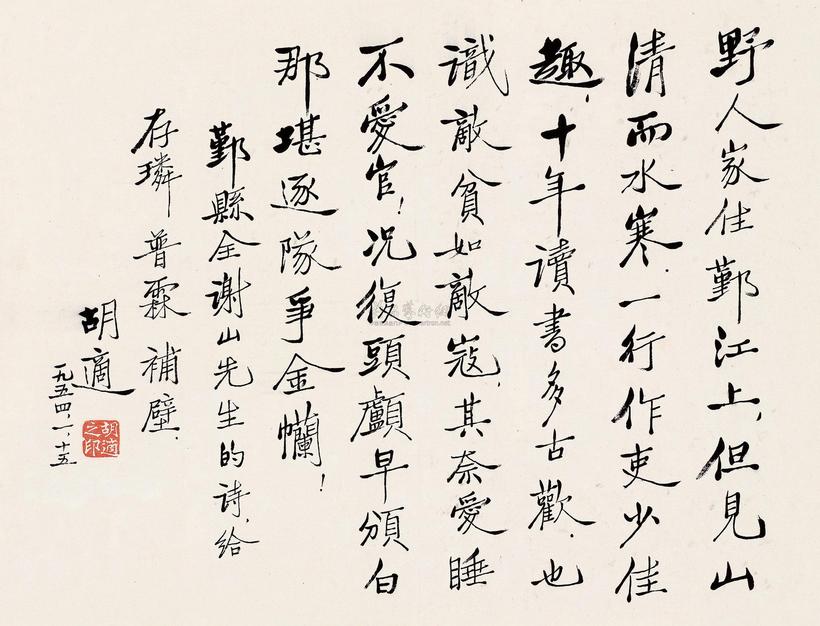 野人家住鄞江上,但見山
清而水寒.一行作吏少佳
趣,十年讀書多古歡.也
識敵貧如敵寇,其奈愛睡
不愛官!况復頭顱早頒白
那堪逐隊爭金幱!
鄞縣全謝山先生的詩,給
存璘普霖補壁.
胡適
一九五四,一,十五
胡適之印